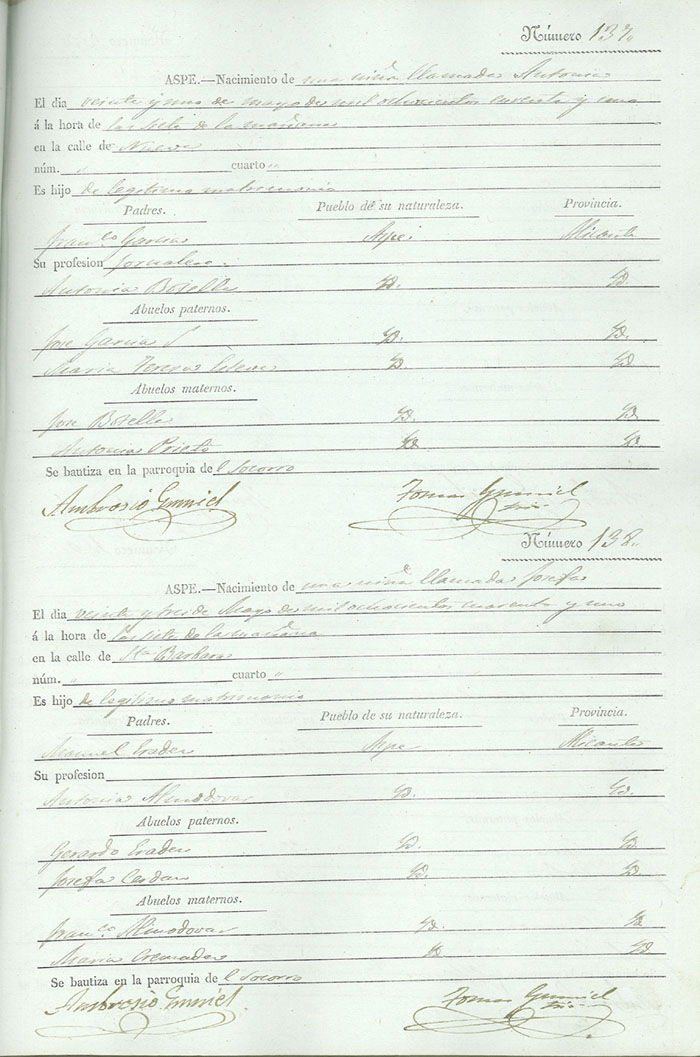 Número 137.
ASPE.—Nacimiento de una niña llamada Antonia
El dia veinte y uno de mayo de mil ochocientos cuarenta y uno
á la hora de las siete de la mañana
en la calle de Nueva
núm. " cuarto "
Es hijo de legitimo matrimonio
Padres. Pueblo de su naturaleza. Provincia.
Fran.co Garcia Aspe. Alicante
Su profesion jornalero.
Antonia Botella Yd. Yd.
Abuelos paternos.
Jose Garcia Yd. Yd.
Maria Teresa Yd. Yd.
Abuelos maternos.
Jose Botella Yd. Yd.
Antonia Prieto Yd. Yd.
Se bautiza en la parroquia del Socorro
Ambrosio Gumiel Tomas Gumiel
Srio.
Número 138.
ASPE.—Nacimiento de una niña llamada Josefa
El dia veinte y tres de Mayo de mil ochocientos cuarenta y uno
á la hora de las siete de la mañana
en la calle de Sta Barbara
núm. " cuarto "
Es hijo de legitimo matrimonio
Padres. Pueblo de su naturaleza. Provincia.
Manuel Eraden Aspe Alicante
Su profesion
Antonia Almodovar Yd. Yd.
Abuelos paternos.
Gerardo Eraden Yd. Yd.
Josefa Cerdan Yd. Yd.
Abuelos maternos.
Fran.co Almodovar Yd. Yd.
Maria Cremades Yd Yd
Se bautiza en la parroquia del Socorro
Ambrosio Gumiel Tomas Gumiel
Srio.